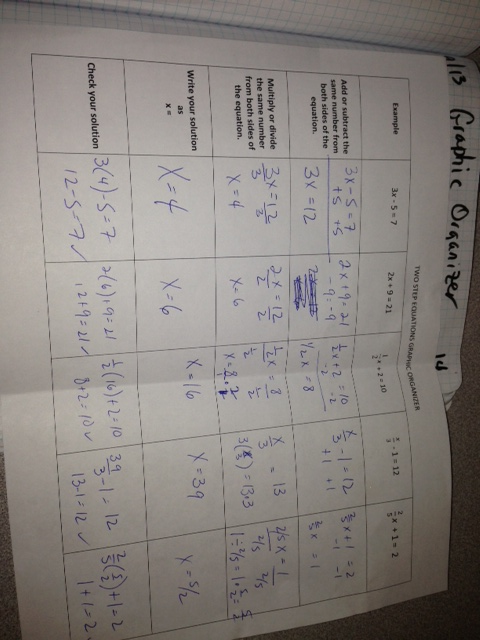 1/13 Graphic Organizer
1d
TWO STEP EQUATIONS GRAPHIC ORGANIZER
Example
3x - 5 = 7
2x + 9 = 21
1/2 x + 2 = 10
x/3 - 1 = 12
2/5 x + 1 = 2
Add or subtract the
same number from
both sides of the
equation.
3x - 5 = 7
+5 +5
3x = 12
2x + 9 = 21
-9 = -9
1/2 x + 2 = 10
-2 -2
1/2 x = 8
x/3 - 1 = 12
+1 +1
2/5 x + 1 = 2
-1 -1
2/5 x = 1
Multiply or divide
the same number
from both sides of
the equation.
3x/3 = 12/3
x = 4
2x/2 = 12/2
x = 6
1/2 x = 8
1/2 1/2
x = 8 · 2
x/3 = 13
3(x/3) = 13·3
2/5 x = 1
2/5 2/5
1 ÷ 2/5 = 1 · 5/2 = 5/2
Write your solution
as
x =
x = 4
x = 6
x = 16
x = 39
x = 5/2
Check your solution
3(4) - 5 = 7
12 - 5 = 7 ✓
2(6) + 9 = 21
12 + 9 = 21 ✓
1/2 (16) + 2 = 10
8 + 2 = 10 ✓
39/3 - 1 = 12
13 - 1 = 12 ✓
2/5 (5/2) + 1 = 2
1 + 1 = 2